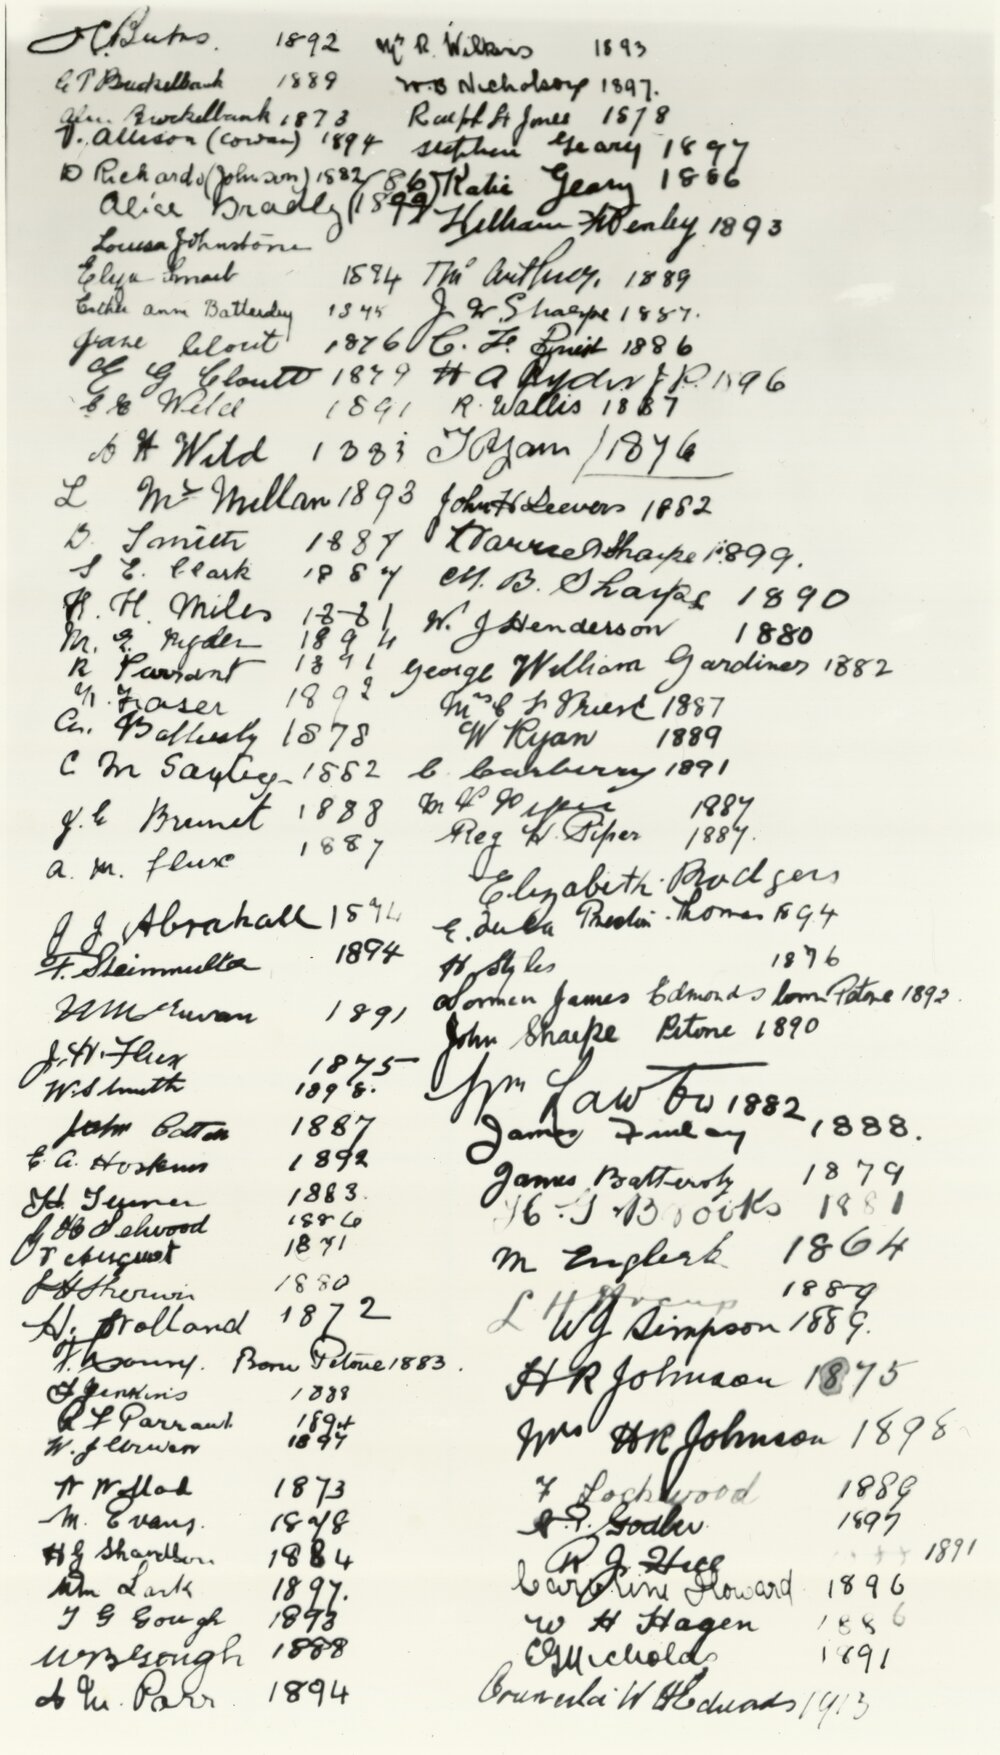 Burns. 1892
G T Brockelbank 1889
Brockelbank 1873
V. Allison (Cowan) 1894
D Richards (Johnson) 1882/86
Alice Bradly (1899)
Louisa Johnstone
Eliza Smart 1894
Esther Ann Battersby 1845
Jane Clout 1876
E G Cloutt 1879
Weld 1891
A H Wild 1883
L McMillan 1893
B. Smith 1887
S E. Clark 1887
H. H. Miles 1881
M. E. Ryder 1894
R Parrant 1891
Fraser 1892
Battersby 1878
C M Sayley 1882
J. E Brunet 1888
a. m. Flux 1887
J J Abrahall 1894
F. Steinmuller 1894
McEwan 1891
J. H. Flux 1875
W. Smith 1898.
John Cotton 1887
E A. Hoskins 1892
H. Turner 1883.
Selwood 1886
T August 1871
J H Sherwin 1880
H. Holland 1872
Born Petone 1883.
Jenkins 1888
R F Parrant 1894
W. J Corwen 1897
1873
M. Evans. 1878
H G Shardlow 1884
Wm Lark 1897.
T G Gough 1893
W B Gough 1888
A M. Parr 1894
Mrs R. Wilkins 1893
W. B Nicholson 1897.
Ralph H Jones 1878
Stephen Geary 1897
Katie Geary 1886
William Henley 1893
Thos Arthur. 1889
J. W. Sharpe 1887.
C. F. Priest 1886
H A Ryder J.P. 1896
R. Wallis 1887
T Ryan / 1876
John H Leevers 1882
Sharpe 1899.
M. B. Sharpe 1890
W. J Henderson 1880
George William Gardiner 1882
Mrs C F Priest 1887
W Ryan 1889
C. Carberry 1891
M 1887
Reg W. Piper 1887.
Elizabeth Rodgers
E. Zula Preston Thomas 1894
H Styles 1876
Norman James Edmonds born Petone 1892.
John Sharpe Petone 1890
Wm Lawton 1882
James Finlay 1888.
James Battersby 1879
H. J Brooks 1881
M Englerk 1864
L H 1889
W J Simpson 1889.
H R Johnson 1875
Mrs H R Johnson 1898
F Lockwood 1889
Godber 1897
R J Hill 1891
Caroline Howard 1896
W H Hagen 1886
Nicholds 1891
W H Edwards 1913